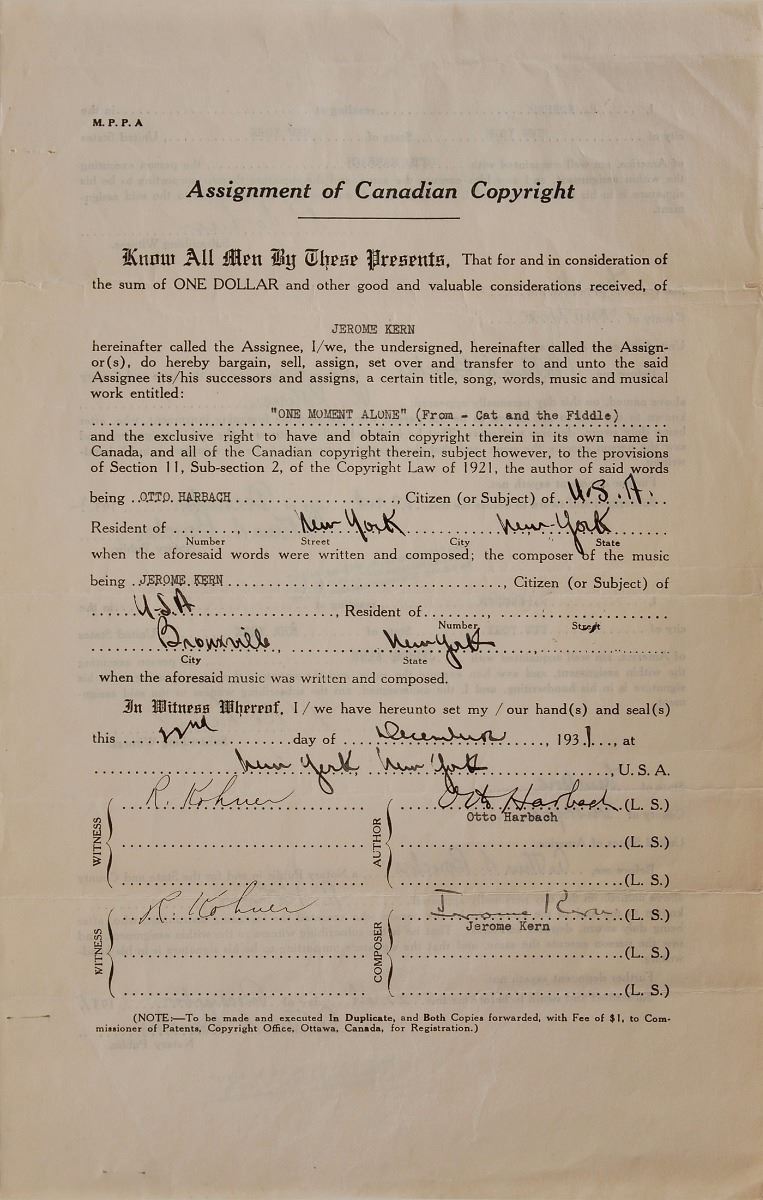 M. P. P. A
Assignment of Canadian Copyright
Know All Men By These Presents, That for and in consideration of
the sum of ONE DOLLAR and other good and valuable considerations received, of
JEROME KERN
hereinafter called the Assignee, I/we, the undersigned, hereinafter called the Assign-
or(s), do hereby bargain, sell, assign, set over and transfer to and unto the said
Assignee its/his successors and assigns, a certain title, song, words, music and musical
work entitled:
"ONE MOMENT ALONE" (From - Cat and the Fiddle)
and the exclusive right to have and obtain copyright therein in its own name in
Canada, and all of the Canadian copyright therein, subject however, to the provisions
of Section 11, Sub-section 2, of the Copyright Law of 1921, the author of said words
being OTTO HARBACH, Citizen (or Subject) of U.S.A.
Resident of New York New York
Number Street City State
when the aforesaid words were written and composed; the composer of the music
being JEROME KERN, Citizen (or Subject) of
U.S.A, Resident of
Number Street
Bronxville, New York
City State
when the aforesaid music was written and composed.
In Witness Whereof, I/we have hereunto set my/our hand(s) and seal(s)
this 22nd day of December, 1931, at
New York, New York, U. S. A.
WITNESS R. Kohner AUTHOR Otto Harbach (L. S.)
Otto Harbach
(L. S.)
(L. S.)
WITNESS R. Kohner COMPOSER Jerome Kern (L. S.)
Jerome Kern
(L. S.)
(L. S.)
(NOTE:—To be made and executed In Duplicate, and Both Copies forwarded, with Fee of $1, to Com-
missioner of Patents, Copyright Office, Ottawa, Canada, for Registration.)